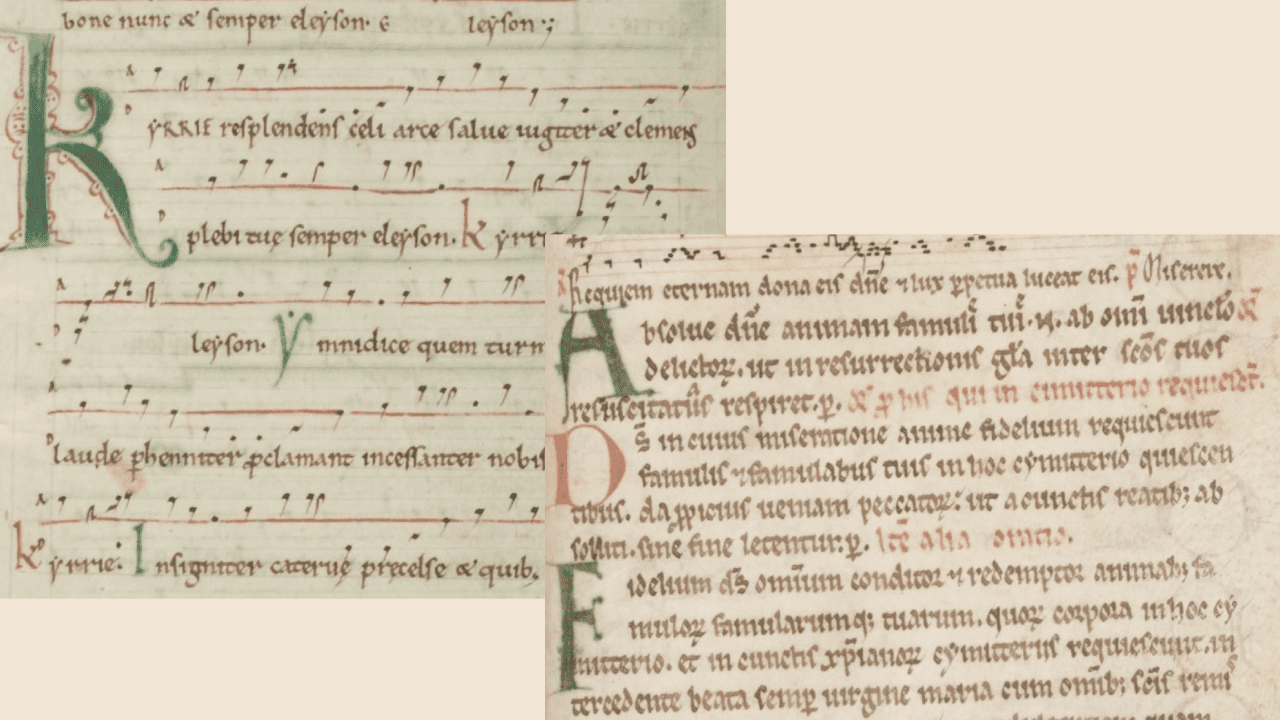 bone nunc & semper eleẏson. e leẏson
KẏRRIE resplendens cęli arce salue iugiter & clemens
plebi tuę semper eleẏson. kẏrr
leẏson. ẏmnidice quem turm
laude phenniter pclamant incessanter nobis
kẏrrie. Insigniter cateruę pręcelse & quib.
Requiem eternam dona eis dñe ⁊ lux ꝑpetua luceat eis. p̄ Miserere.
Absolue dñe animam famuli tui. N. ab om̄i uinclo
delictoꝝ. ut in resurrectionis gl̄a inter sc̄os tuos
resuscitatus respiret. p. & p his qui in cimitterio requiesct̄.
Ds̄ in cuius miseratione anime fidelium requiescunt
famulis ⁊ famulabus tuis in hoc cymitterio quiescen
tibus. da ꝓpicius ueniam peccatoꝝ. ut a cunctis reatib; ab
soluti. sine fine letentur. p. Itē alia oratio.
Fidelium ds̄ omium conditor ⁊ redemptor animab; fa
muloꝝ famularumq; tuarum. quoꝝ corpora in hoc cy
mitterio. et in cunctis xp̄ianoꝝ cymitteriis requiescunt. in
tercedente beata semꝑ uirgine maria cum om̄ib; sc̄is